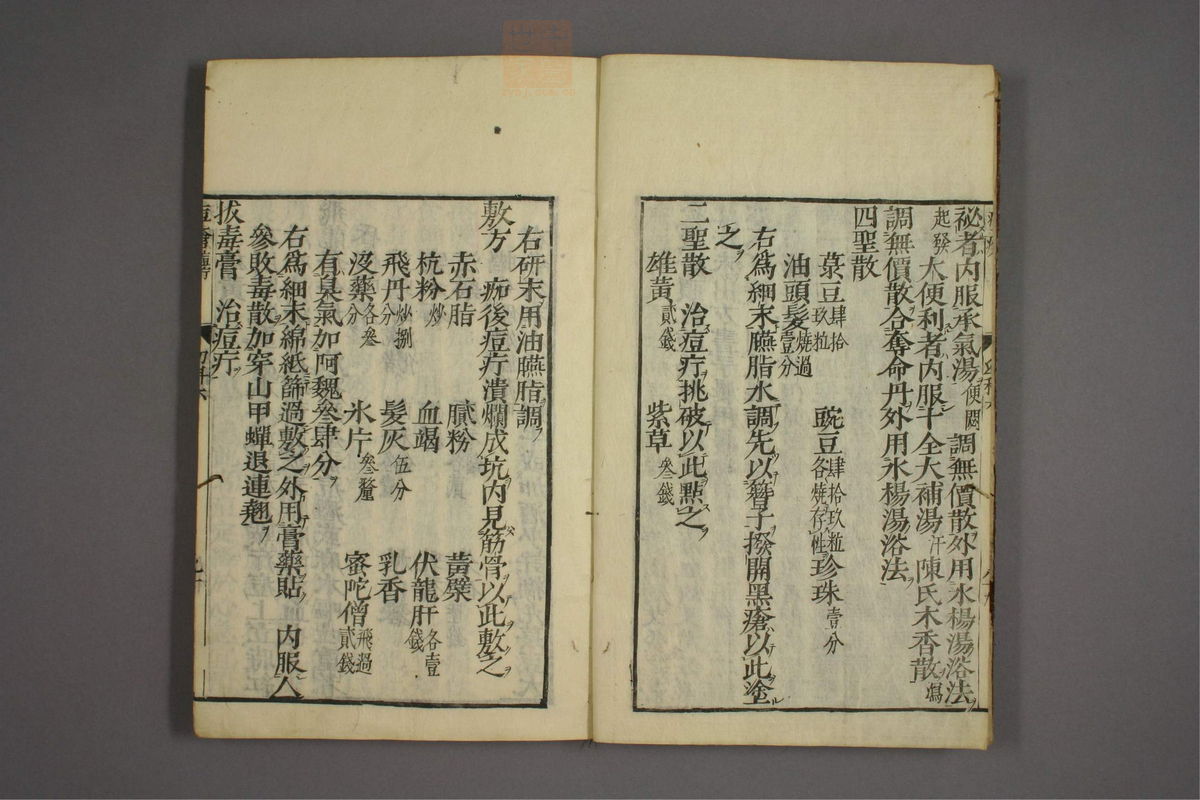 祕者内服承氣湯便閟調無價散外用水楊湯浴法
起發大便利者内服十全大補湯汗陳氏木香散瀉
調無價散合奪命丹外用水楊湯浴法
四聖散
菉豆肆拾玖粒 豌豆肆拾玖粒各燒存性 珍珠壹分
油頭髮燒過壹分
右爲細末臙脂水調先以簪子撥開黑瘡以此塗
之
二聖散 治痘疔挑破以此點之
雄黄貳錢 紫草叄錢
右研末用油臙脂調
敷方 痂後痘疔潰爛成坑内見筋骨以此敷之
赤石脂 膩粉 黃檗
杭粉炒 血竭 伏龍肝各壹錢
飛丹炒捌分 髮灰伍分 乳香
沒藥各叄分 氷片叄釐 蜜陀僧飛過貳錢
有臭氣加阿魏叄肆分
右爲細末綿紙篩過敷之外用膏藥貼 内服人
參敗毒散加穿山甲蟬退連翹
拔毒膏 治痘疔